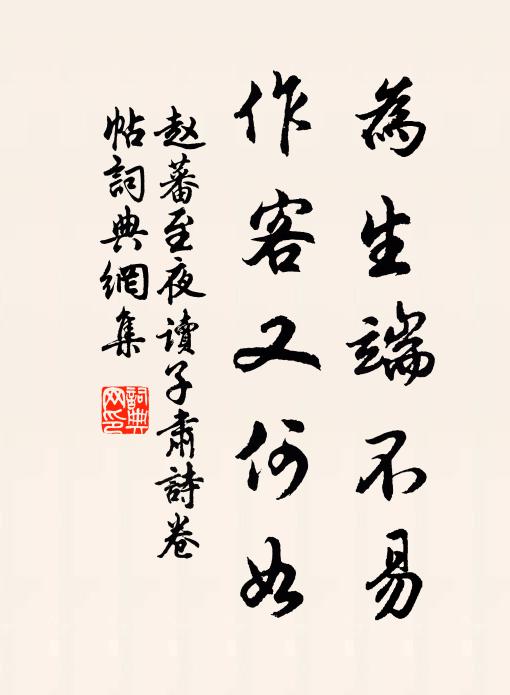 為生端不易
作客又何如
赵蕃至夜读子肅詩卷
帖詞典網集
詞典網印